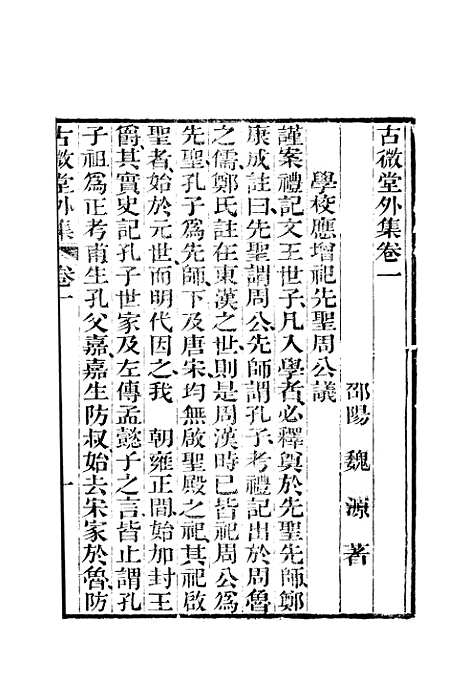 古微堂外集卷一
邵陽 魏源 著
學校應增祀先聖周公議
謹案禮記文王世子凡入學者必釋奠於先聖先師鄭
康成註曰先聖謂周公先師謂孔子考禮記出於周魯
之儒鄭氏註在東漢之世則是周漢時已皆祀周公爲
先聖孔子爲先師下及唐宋均無啟聖殿之祀其祀啟
聖者始於元世而明代因之我 朝雍正間始加封王
爵其實史記孔子世家及左傳孟懿子之言皆止謂孔
子祖爲正考甫生孔父嘉嘉生防叔始去宋家於魯防
古微堂外集 卷一 一